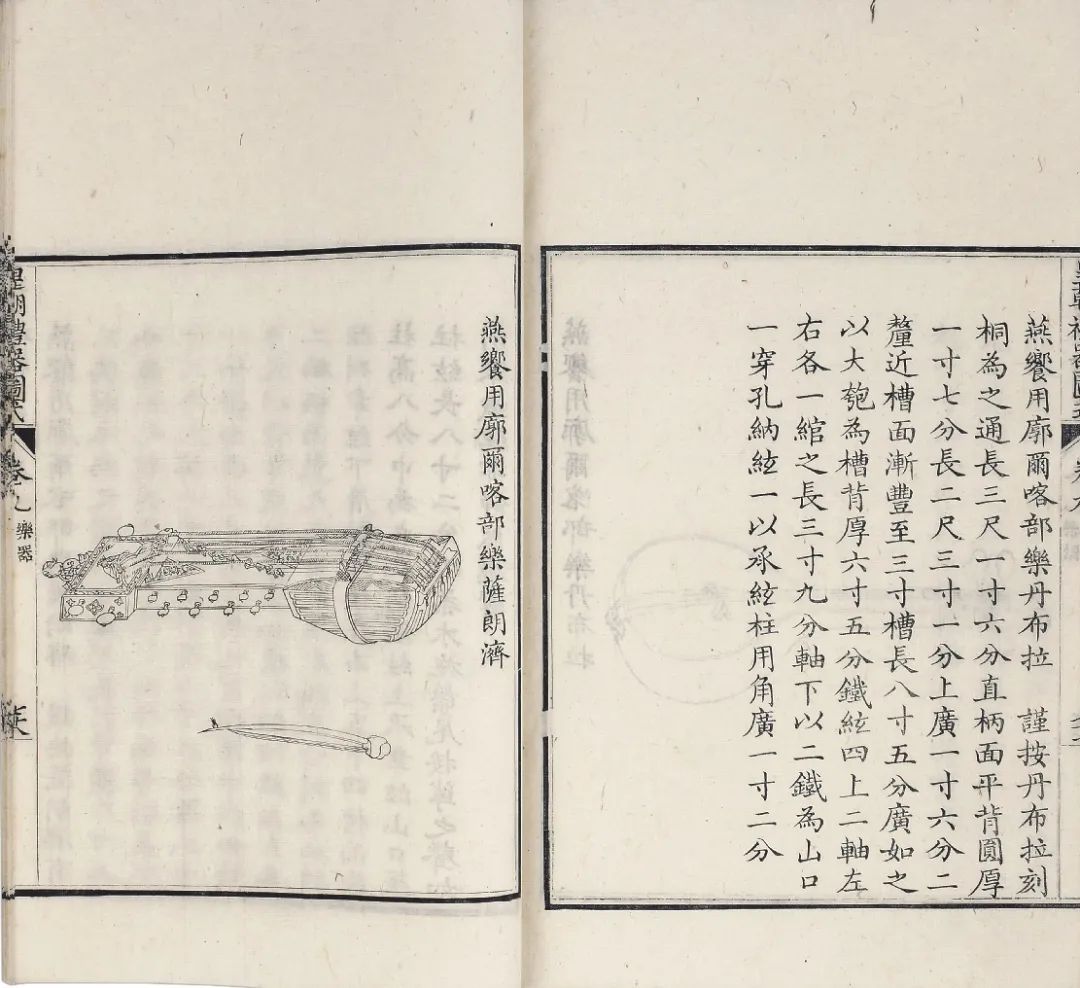 燕饗用廓爾喀部樂丹布拉 謹按丹布拉刻
桐為之通長三尺一寸六分直柄面平背圓厚
一寸七分長二尺三寸一分上廣一寸六分二
釐近槽面漸豐至三寸槽長八寸五分廣如之
以大匏為槽背厚六寸五分鐵絃四上二軸左
右各一綰之長三寸九分軸下以二鐵為山口
一穿孔納絃一以承絃柱用角廣一寸二分
燕饗用廓爾喀部樂薩朗濟
皇朝禮器圖式 卷九 樂器